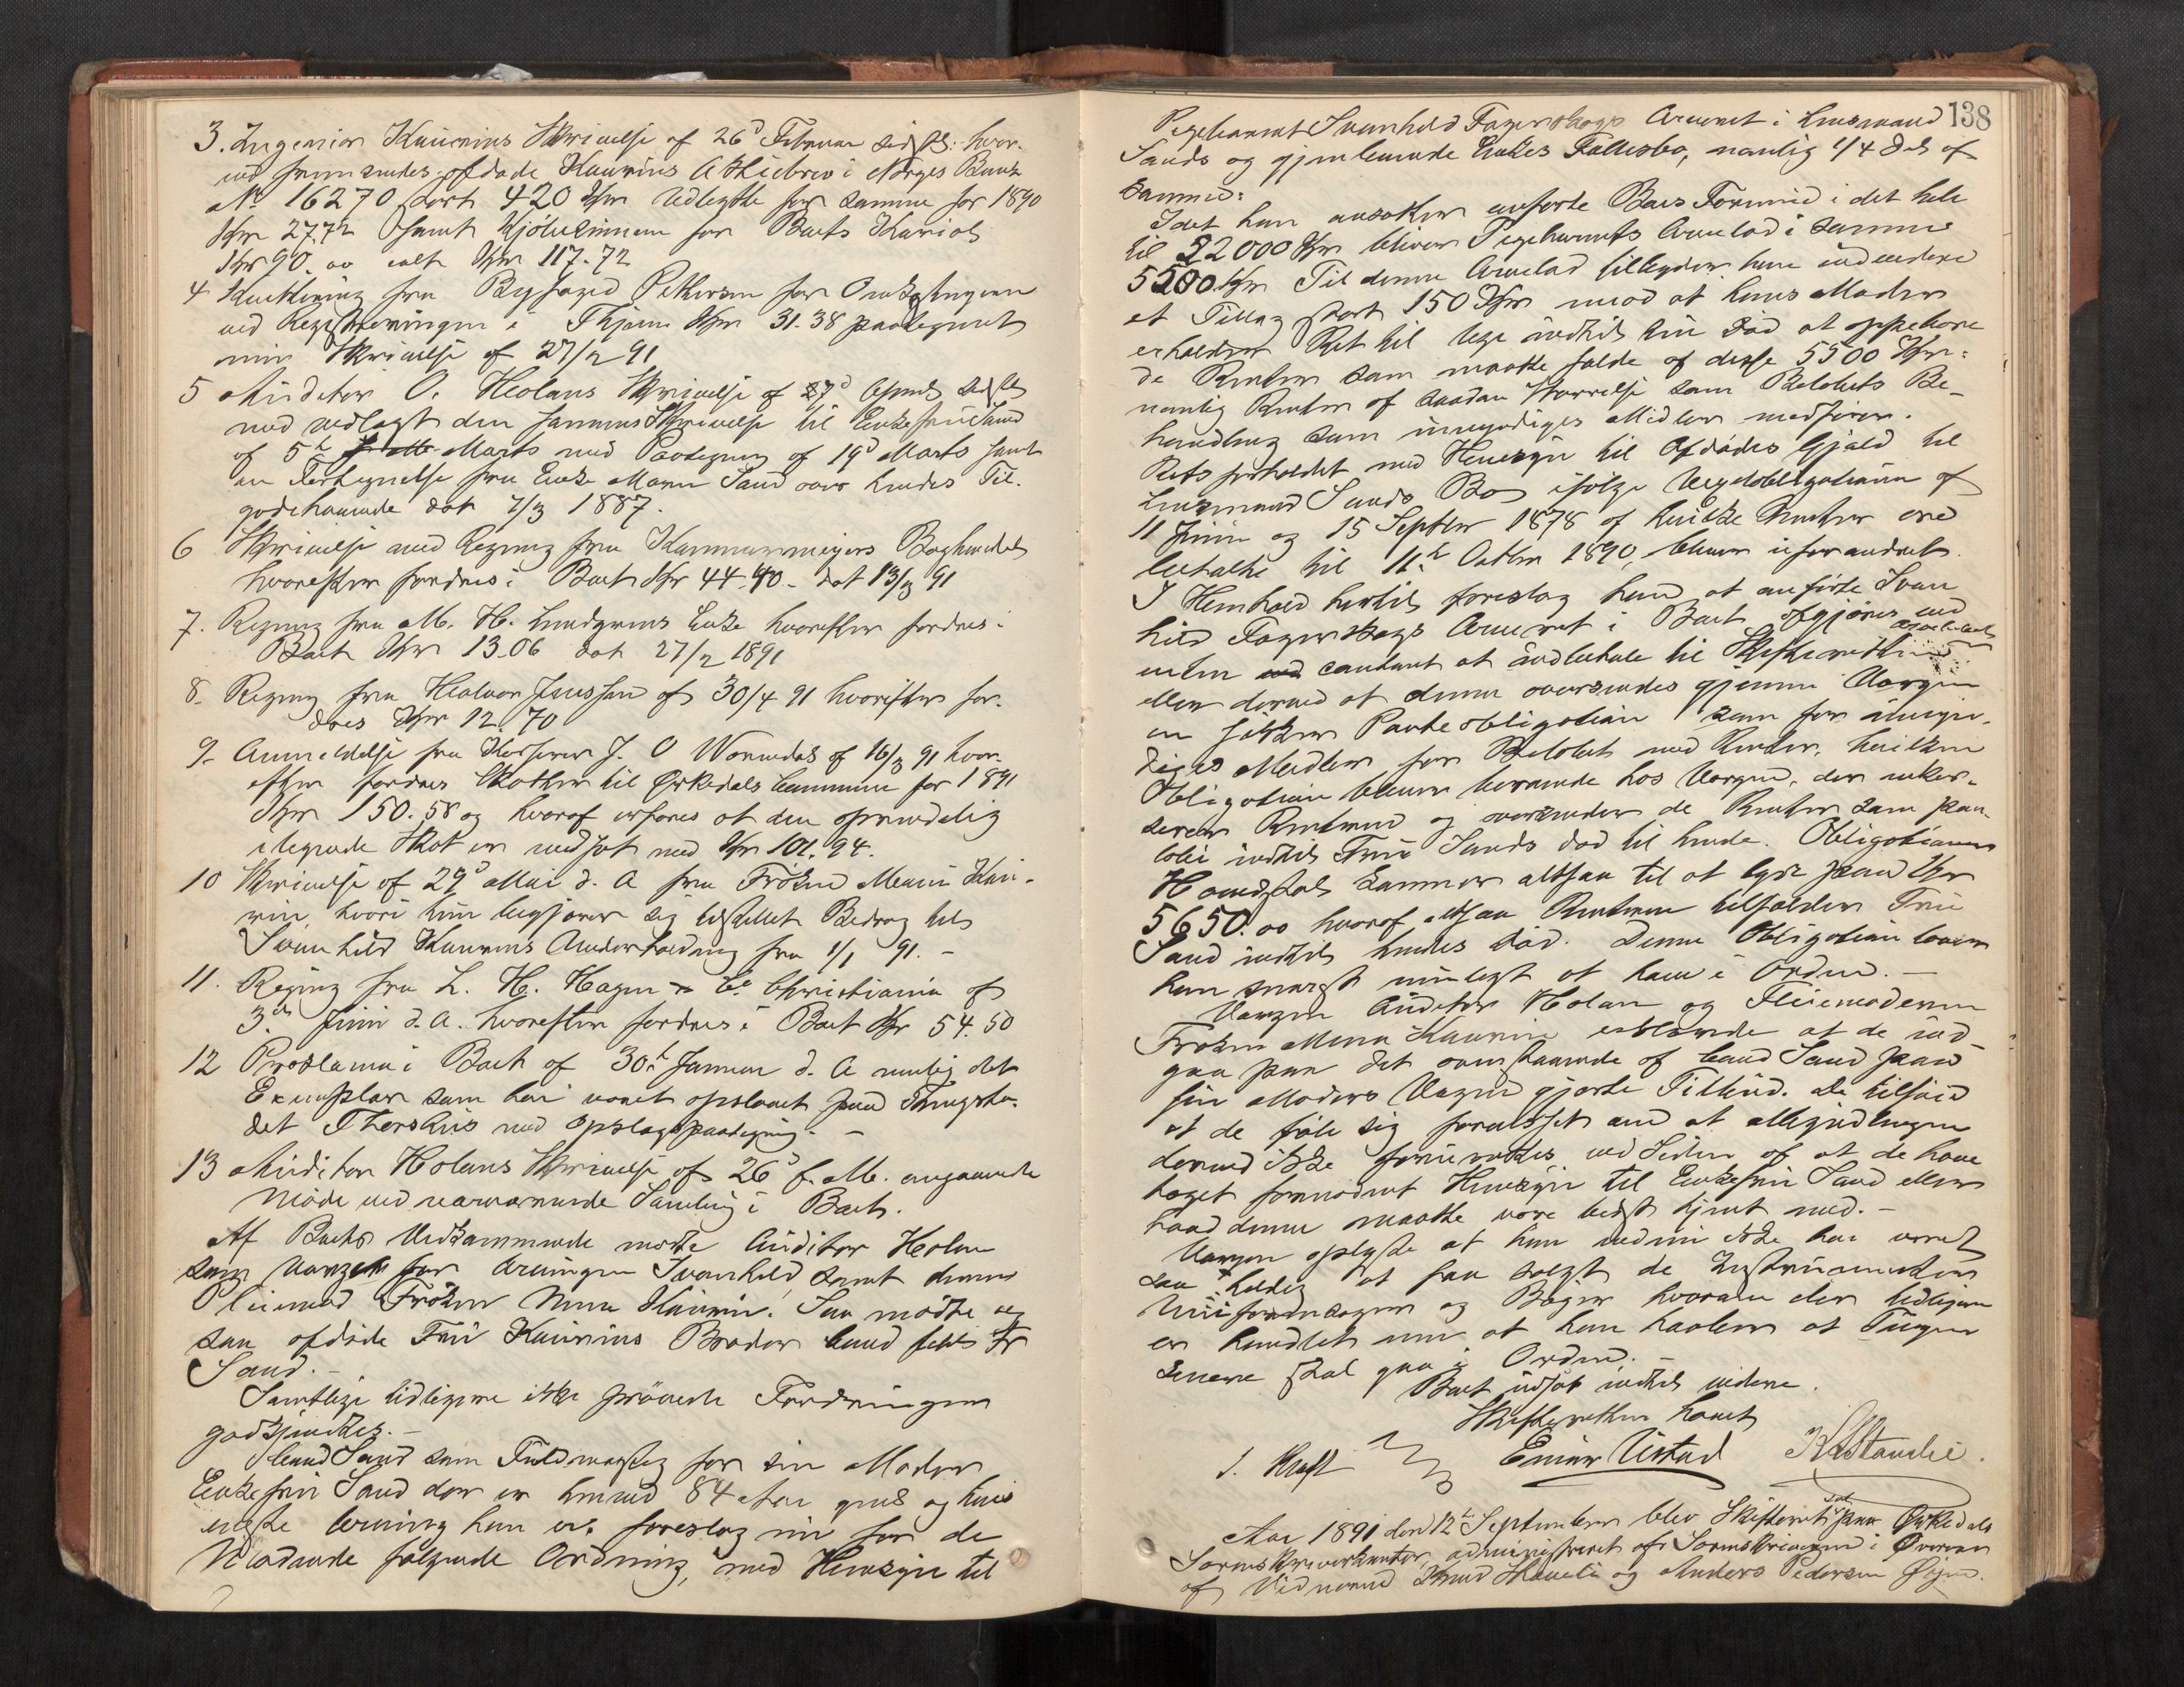 3. Ingeniør Kaurins Skrivelse af 26d Februar sidstl. hvor-
ved fremsendes afdøde Kaurins Aktiebrev i Norges Bank
No 16270 stort 420 Kr Udbytte for samme for 1890
Kr 27.72 samt Kjøbesummen for Boets Kariol
Kr 90. oo ialt Kr 117.72
4 fra Byfoged Petersen for Omkostninger
ved Registreringen i Kr 31.38 paategnet
min Skrivelse af 27/2 91
5 Auditør O. Holans Skrivelse af 27d April sidstl
med vedlagt den sammes Skrivelse til Enkefru Sand
af 5te Marts med Paategning af 19d Marts samt
en Fortegnelse fra Enke Maren Sand over hendes Til-
godehavende dat 7/3 1887.
6 Skrivelse med Regning fra Kammermeyers Boghandel
hvorefter fordres i Boet Kr 44.40 - dat 13/3 91
7. Regning fra M. H. Lundgrens Enke hvorefter fordres i
Boet Kr 13.06 dat 27/2 1891
8. Regning fra Halvor Jensson af 30/4 91 hvorefter for-
dres Kr 12.70
9. Anmeldelse fra Kasserer J. O Wormdal af 16/3 91 hvor-
efter fordres Skatter til Ørkedals Commune for 1891
Kr 150.58 og hvoraf erfares at den oprindelig
ilegnede Skat er nedsat med Kr 101.94.
10 Skrivelse af 29d Mai d. A fra Frøken Menna Kau-
rin hvori hun begjærer sig tilstillet Bidrag til
Svanhild Kaurins Underholdning fra 1/1 91. -
11. Regning fra L. H. Hagen & Co Christiania af
3die Juni d. A. hvorefter fordres i Boet Kr 54.50
12 Proclama i Boet af 30te Januar d. A nemlig det
Exemplar som har været opslaaet paa Thingste-
det med Opslagspaategning. -
13 Auditør Holans Skrivelse af 26d f. M. angaaende
Møde ved nærværende Samling i Boet.
Af Boets Vedkommende mødte Auditør Holan
som Værge for Arvingen Svanhild samt dennes
Pleiemod Frøken Menna Kaurin. Saa mødte og-
saa afdøde Fru Kaurins Broder Cand
Sand. -
Samtlige tidligere ikke prøvede Fordringer
godkjendtes. -
Cand Sand som Fuldmægtig for sin Moder
Enkefru Sand der er henved 84 Aar gml og hvis
eneste Arving han er, foreslog nu for de
Mødende følgende Ordning, med Hensyn til
138
Pigebarnet Svanhild Fagerskogs Arveret i Lensmand
Sands og gjenlevende Enkes Fællesbo, nemlig 1/4 Del af
samme:
Idet han ansætter anførte Boes Formue i det hele
til 22000 Kr bliver Pigebarnets Arvelod i samme
5500 Kr Til denne Arvelod tilbyder han endvidere
et Tillæg stort 150 Kr mod at hans Moder
erholder Ret til lige indtil sin Død at oppebære
de Renter som maatte falde af disse 5500 Kr:
nemlig Renter af saadan Størrelse som Beløbets Be-
handling som umyndiges Midler medfører.
Retsforholdet med Hensyn til Afdødes Gjæld til
Lensmand Sands Bo ifølge Gjeldsobligationer af
11 Juni og 15 Septbr 1878 af hvilke Renter ere
betalte til 11te Octbr 1890, bliver uforandret.
I Henhold hertil foreslog han at anførte Svan
hild Fagerskogs Arveret i Boet afgjøres ved
enten contant at indbetale til Skifteretten
eller derved at denne oversendes gjennem Værgen
en sikker Panteobligation som for umyn-
diges Midler for Beløbet med Renter, hvilken
Obligation bliver beroende hos Værgen, der inkas-
serer Renterne og oversender de Renter som paa-
løbe indtil Fru Sands død til hende. Obligationens
Hovedstol kommer altsaa til at lyde paa Kr
5650.oo hvoraf altsaa Renterne tilfalder Fru
Sand indtil hendes død. Denne Obligation lover
han snarest muligt at have i Orden. -
Værgen Auditør Holan og Pleiemoderen
Frøken Menna Kaurin erklærede at de ind-
gaa paa det ovenstaaende af Cand Sand paa
sin Moders Vegne gjorte Tilbud. De tilføied
at de føle sig forvisset om at Afgjørelsen
derved ikke forrykkes ved Siden af at de have
taget fornødent Hensyn til Enkefru Sand eller
hvad denne maatte være bedst tjent med. -
Værgen oplyste at han endnu ikke har været
saa heldig at faa solgt de Instrumenter
Uniformssager og Bøger hvorom der tidligere
er handlet men at han haaber at Tingen
senere skal gaa i Orden. -
Boet udsat indtil videre.
Skifteretten hævet
J. Kraft Einar Uistad
Aar 1891 den 12te September blev Skifteret sat paa Ørkedals
Sorenskriverkontor, administreret af Sorenskriveren i Overvær
af Vidnerne Knud og Anders Pedersen